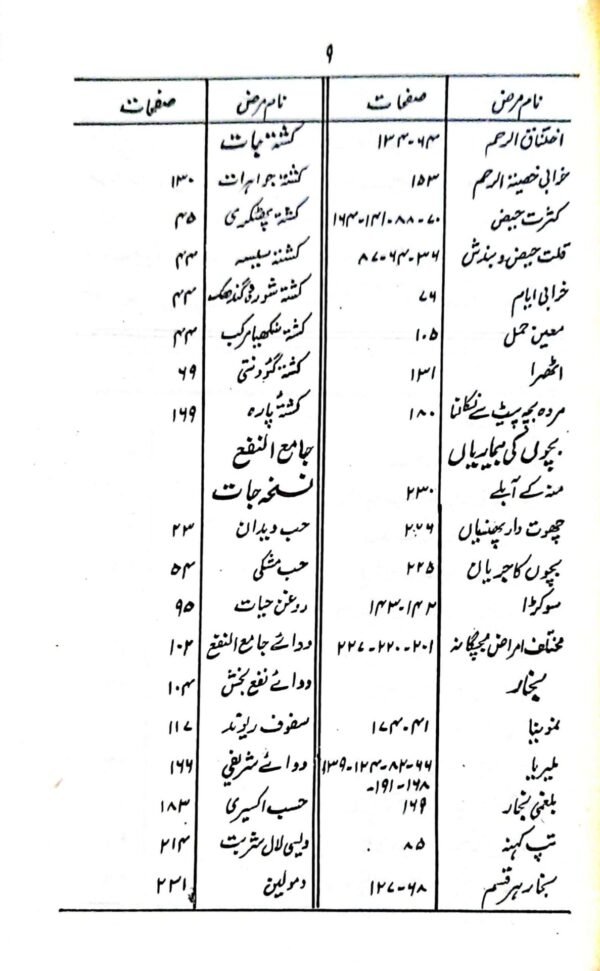 ۹
نام مرض صفحات
اختناق الرحم ۶۴-۱۳۴
خرابی خصیۃ الرحم ۱۵۳
کثرت حیض ۷۰-۸۸-۱۴۱-۱۶۴
قلت حیض و بندش ۳۶-۶۴-۸۷
خرابی ایام ۷۶
معین حمل ۱۰۵
اٹھرا ۱۳۱
مردہ بچہ پیٹ سے نکالنا ۱۸۰
بچوں کی بیماریاں
منہ کے آبلے ۲۳۰
چھوت دار پھنسیاں ۲۲۶
بچوں کا جریاں ۲۲۵
سوکڑا ۱۴۲-۱۴۳
مختلف امراض بچگانہ ۲۰۱-۲۲۰-۲۲۷
بخار
نمونیا ۴۱-۱۷۴
ملیریا ۶۶-۸۲-۱۲۴-۱۳۹
-۱۶۸-۱۹۱
بلغمی بخار ۱۶۹
تپ کہنہ ۸۵
بخار ہر قسم ۶۸-۱۲۷
نام مرض صفحات
کشتہ جات
کشتہ جواہرات ۱۳۰
کشتہ پھٹکڑی ۴۵
کشتہ سیسہ ۴۴
کشتہ شورقی گندھک ۴۴
کشتہ سنکھیا مرکب ۴۴
کشتہ گئودنتی ۶۹
کشتۂ پارہ ۱۶۹
جامع النفع
نسخہ جات
حب دیدان ۲۳
حب مشکی ۵۴
روغن حیات ۹۵
دوائے جامع النفع ۱۰۲
دوائے نفع بخش ۱۰۴
سفوف ریوند ۱۱۷
دوائے شریفی ۱۶۶
حسب اکسیری ۱۸۳
دیسی لال شربت ۲۱۴
دمولین ۲۳۱